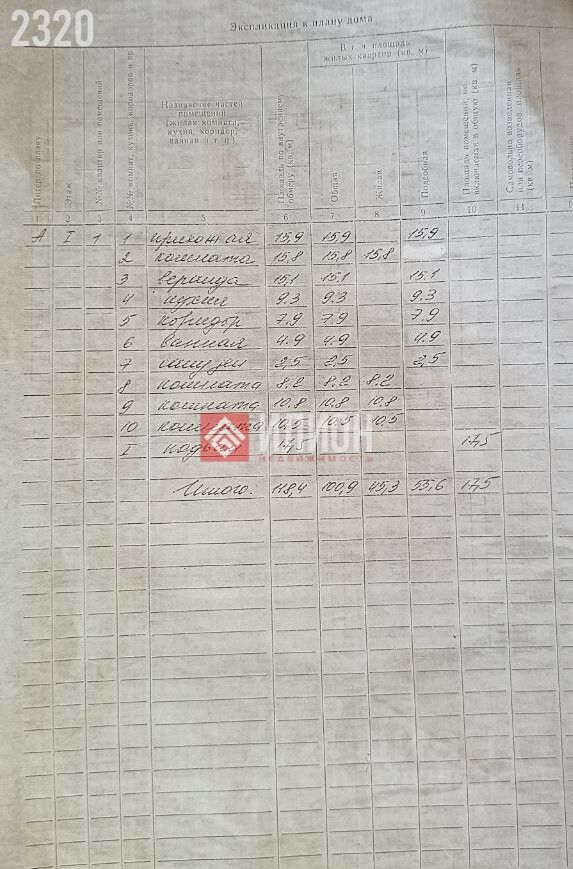 2320
Экспликация к плану дома
Литер по плану
Этаж
№№ квартир или помещений
№№ комнат, кухонь, коридоров и пр
Назначение частей помещений (жилая комната, кухня, коридор, ванная и т.п.)
Площадь по внутреннему обмеру (кв. м)
В т. ч площадь жилых квартир (кв. м)
Общая
Жилая
Подсобная
Площадь помещений, не включаемая в общую (кв. м)
Самовольно возведенная или переоборудов. площадь (кв. м)
1 2 3 4 5 6 7 8 9 10 11
А I 1 1 прихожая 15,9 15,9 15,9
2 комната 15,8 15,8 15,8
3 веранда 15,1 15,1 15,1
4 кухня 9.3 9.3 9.3
5 коридор 7.9 7.9 7.9
6 ванная 4.9 4.9 4.9
7 санузел 2,5 2,5 2,5
8 комната 8.2 8.2 8.2
9 комната 10.8 10.8 10.8
10 комната 10,5 10,5 10,5
I подвал 17,5 17,5
ИЛИОН
недвижимость
Итого: 118,4 100,9 45,3 55,6 17,5